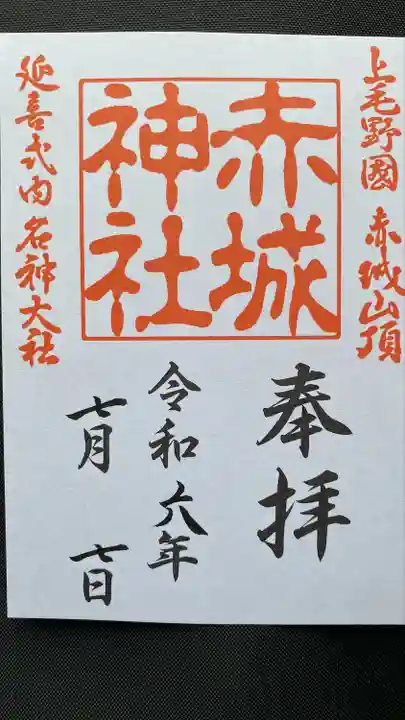 上毛野國 赤城山頂
赤城
神社
延喜式内 名神大社
奉拝
令和六年
七月 七日